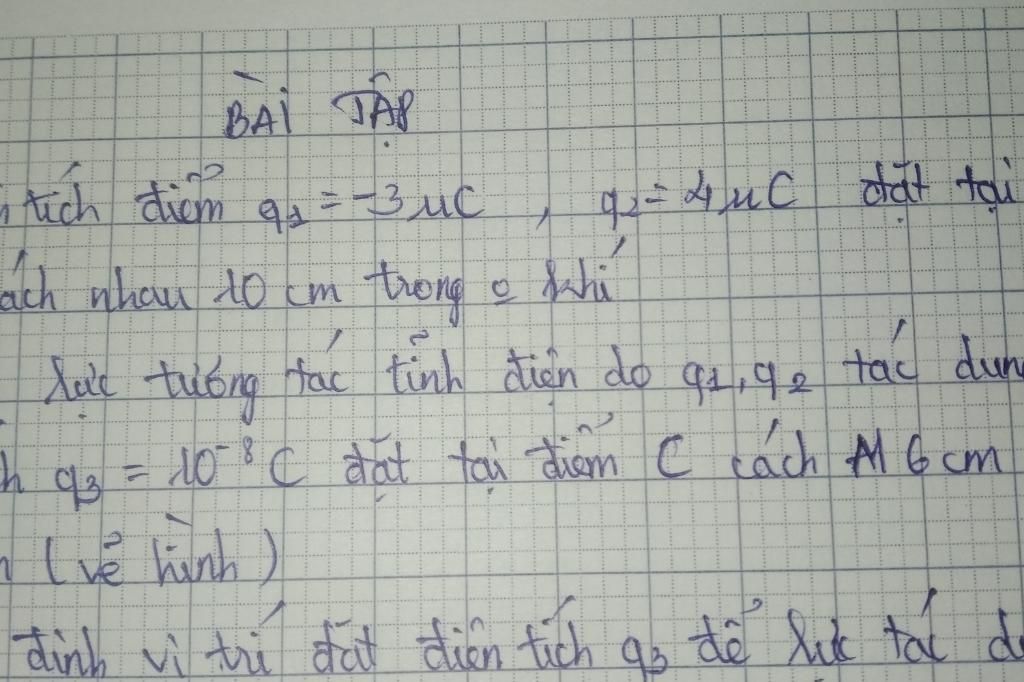 BÀI TẬP
tích điểm q1 = -3 μC , q2 = 4 μC đặt tại
ách nhau 10 cm trong o khí
Lực tương tác tĩnh điện do q1, q2 tác dụn
h q3 = 10⁻⁸ C đặt tại điểm C cách M 6 cm
(vẽ hình)
định vị trí đặt điện tích q3 để lực tác d